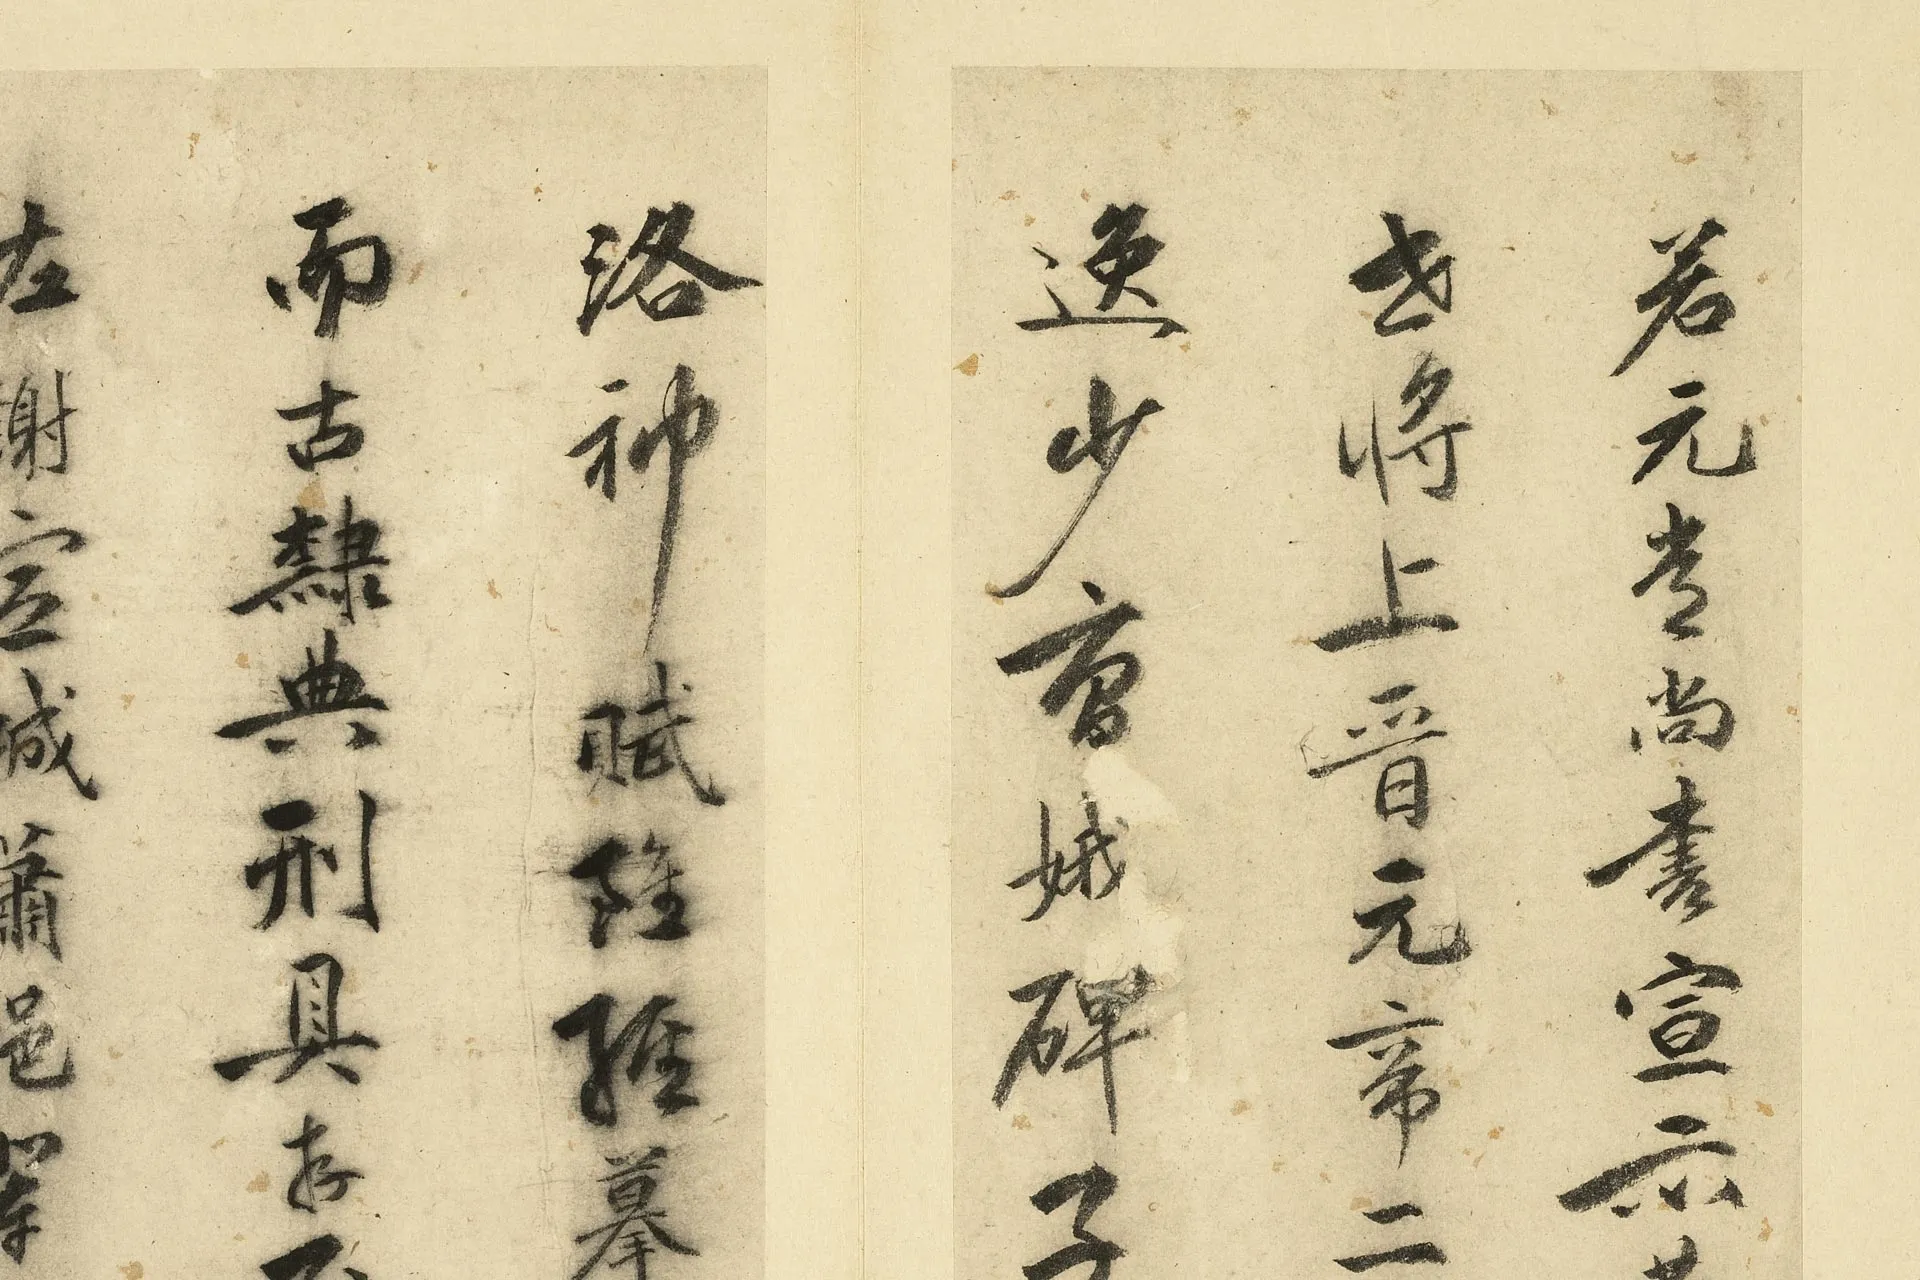 若元常尚書宣示
世將上晉元帝二
逸少曹娥碑子
洛神賦雖經摹
而古隸典刑具存
左謝宣城蕭邑